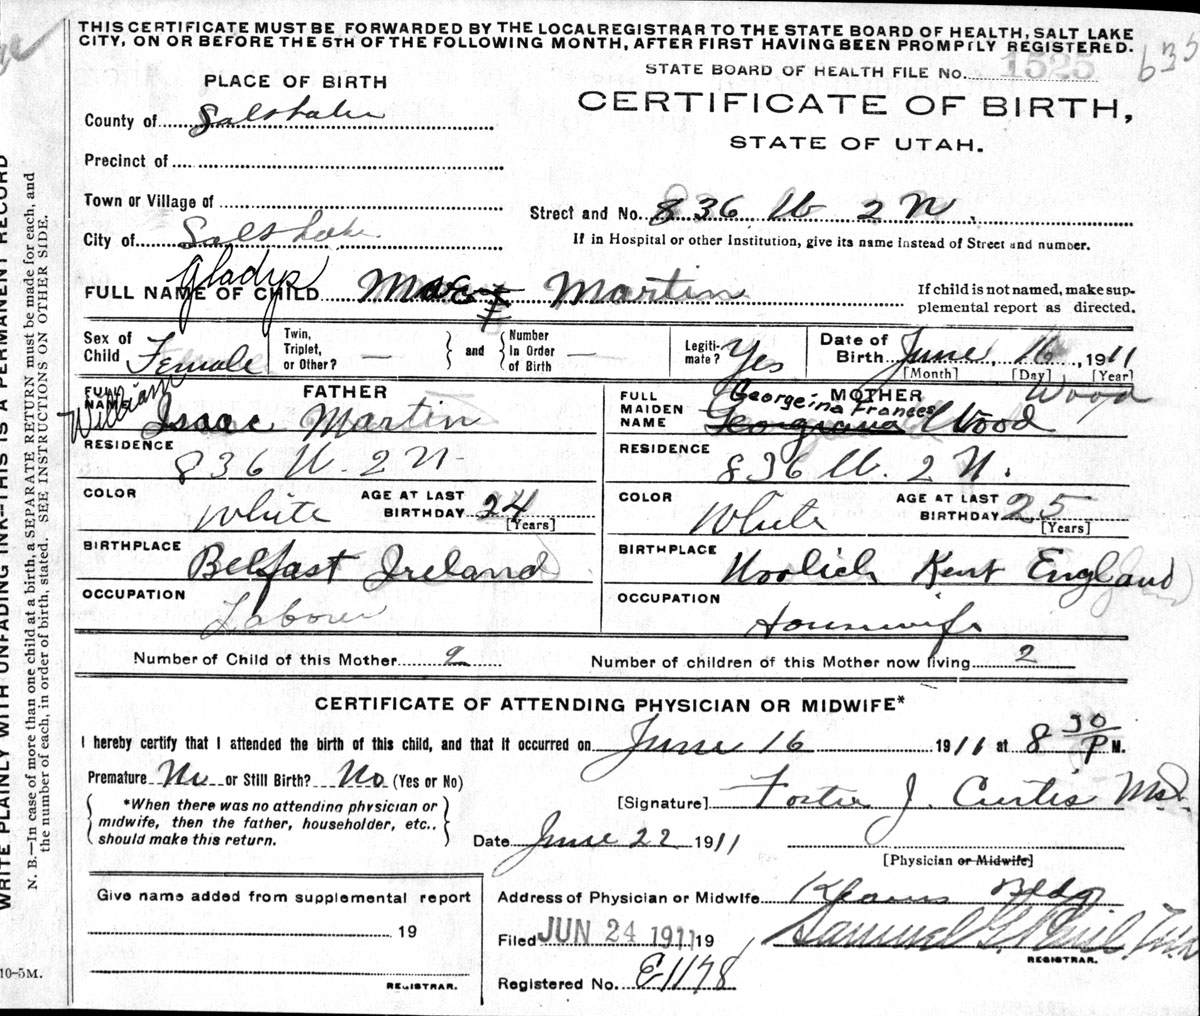 THIS CERTIFICATE MUST BE FORWARDED BY THE LOCAL REGISTRAR TO THE STATE BOARD OF HEALTH, SALT LAKE
CITY, ON OR BEFORE THE 5TH OF THE FOLLOWING MONTH, AFTER FIRST HAVING BEEN PROMPTLY REGISTERED.
STATE BOARD OF HEALTH FILE No. 1525 635
PLACE OF BIRTH
CERTIFICATE OF BIRTH,
STATE OF UTAH.
County of Salt Lake
Precinct of
Town or Village of
City of Salt Lake
Street and No. 836 W 2 N.
If in Hospital or other Institution, give its name instead of Street and number.
FULL NAME OF CHILD Gladys Martin
If child is not named, make supplemental report as directed.
Sex of Child Female
Twin, Triplet, or Other? —
and
Number in Order of Birth —
Legitimate? Yes
Date of Birth June 16, 1911
[Month] [Day] [Year]
FATHER
FULL NAME William Isaac Martin
RESIDENCE 836 W. 2 N.
COLOR White
AGE AT LAST BIRTHDAY 24
[Years]
BIRTHPLACE Belfast Ireland
OCCUPATION Laborer
MOTHER
FULL MAIDEN NAME Georgeina Frances Georgiana Wood Wood
RESIDENCE 836 W. 2 N.
COLOR White
AGE AT LAST BIRTHDAY 25
[Years]
BIRTHPLACE Woolich Kent England
OCCUPATION Housewife
Number of Child of this Mother 2
Number of children of this Mother now living 2
CERTIFICATE OF ATTENDING PHYSICIAN OR MIDWIFE*
I hereby certify that I attended the birth of this child, and that it occurred on June 16 1911 at 8 30 P M.
Premature No or Still Birth? No (Yes or No)
*When there was no attending physician or
midwife, then the father, householder, etc.,
should make this return.
[Signature] Foster J. Curtis Md.
Date June 22 1911
[Physician or Midwife]
Give name added from supplemental report
19
REGISTRAR.
Address of Physician or Midwife Kearns Bldg
Filed JUN 24 1911 19
Samuel G. Paul
REGISTRAR.
Registered No. E1178
WRITE PLAINLY WITH UNFADING INK--THIS IS A PERMANENT RECORD
N. B.—In case of more than one child at a birth, a SEPARATE RETURN must be made for each, and
the number of each, in order of birth, stated. SEE INSTRUCTIONS ON OTHER SIDE.
10-5M.